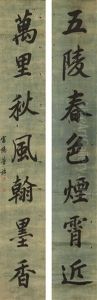 五陵春色煙霄近
萬里秋風翰墨香